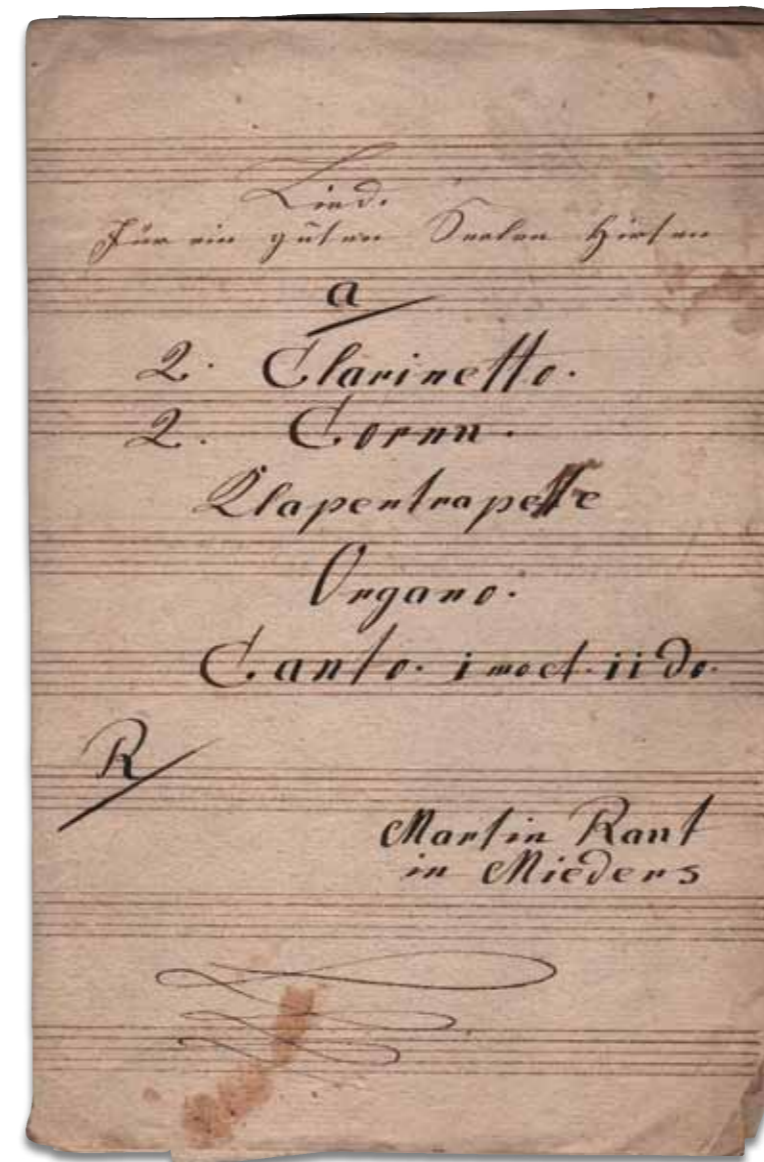 Lied.
Für ein guten Seelen Hirten
a
2. Clarinetto.
2. Cornu.
Klapentrapette
Organo.
Canto. imo et. iido.
R
Martin Rant
in Mieders